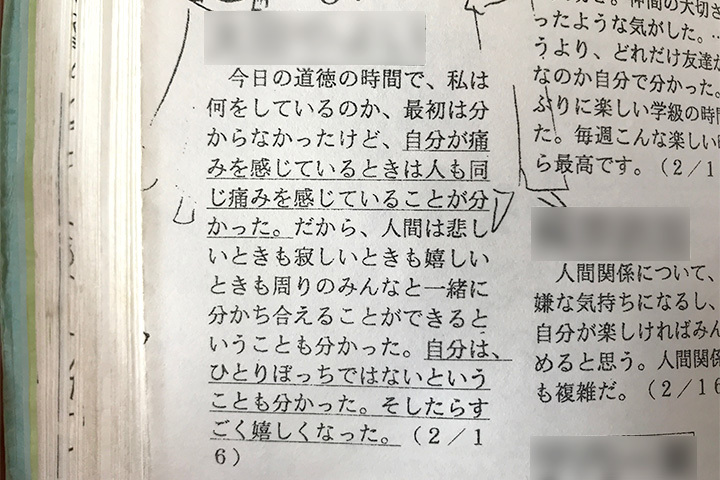 今日の道徳の時間で、私は
何をしているのか、最初は分
からなかったけど、自分が痛
みを感じているときは人も同
じ痛みを感じていることが分
かった。だから、人間は悲し
いときも寂しいときも嬉しい
ときも周りのみんなと一緒に
分かち合えることができると
いうことも分かった。自分は、
ひとりぼっちではないという
ことも分かった。そしたらす
ごく嬉しくなった。（2／1
6）
仲間の大切さ
ったような気がした。
うより、どれだけ友達が
なのか自分で分かった。
ぶりに楽しい学級の時間
た。毎週こんな楽しい
ら最高です。（2／1
人間関係について、
嫌な気持ちになるし、
自分が楽しければみん
めると思う。人間関係
も複雑だ。（2／16